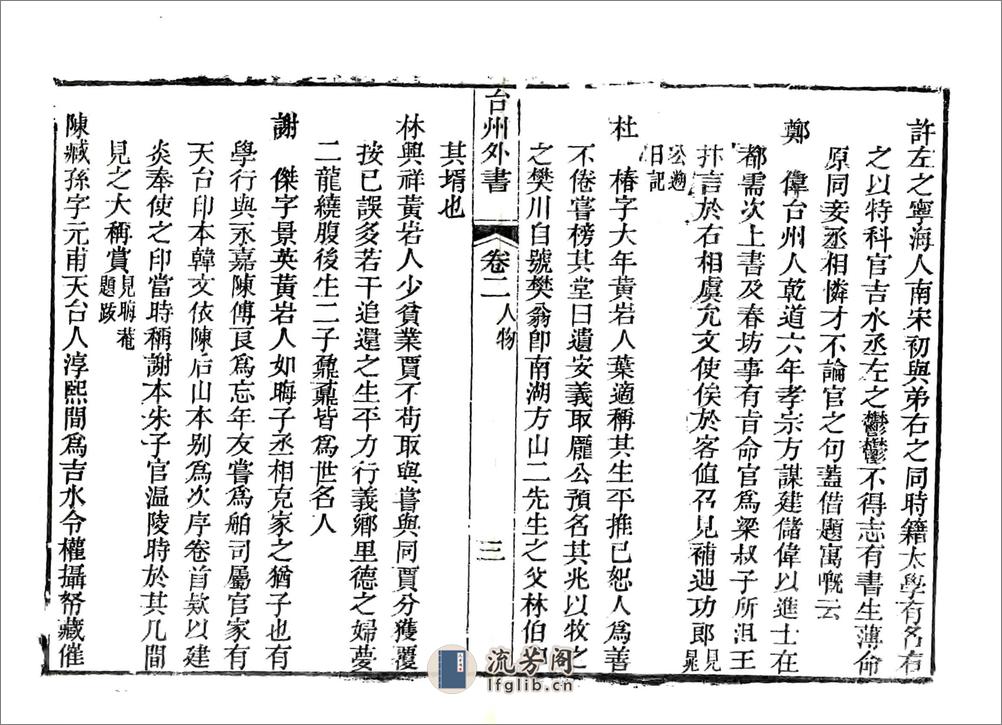 許左之寧海人南宋初與弟右之同時籍太學有名右
之以特科官吉水丞左之鬱鬱不得志有書生薄命
原同妾丞相憐才不論官之句蓋借題寓嘅云
鄭　偉台州人乾道六年孝宗方謀建儲偉以進士在
都需次上書及春坊事有旨命官為梁叔子所沮王
抃言於右相虞允文使俟於客值召見補迪功郎見
日記
杜　椿字大年黃岩人葉適稱其生平推已恕人為善
不倦嘗榜其堂曰遺安義取龐公預名其兆以牧之
之樊川自號樊翁卽南湖方山二先生之父林伯
其壻也
台州外書
卷二
人物
三
林興祥黃岩人少貧業賈不苟取與嘗與同賈分獲覆
按已誤多若干追還之生平力行義鄉里德之婦夢
二龍繞腹後生二子鼐鼒皆為世名人
謝　傑字景英黃岩人如晦子丞相克家之猶子也有
學行與永嘉陳傅良為忘年友嘗為舶司屬官家有
天台印本韓文依陳后山本别為次序卷首欵以建
炎奉使之印當時稱謝本朱子官溫陵時於其几間
見之大稱賞見晦菴
題跋
陳臧孫字元甫天台人淳熙間為吉水令權攝帑藏催
流芳阁
lfglib.cn